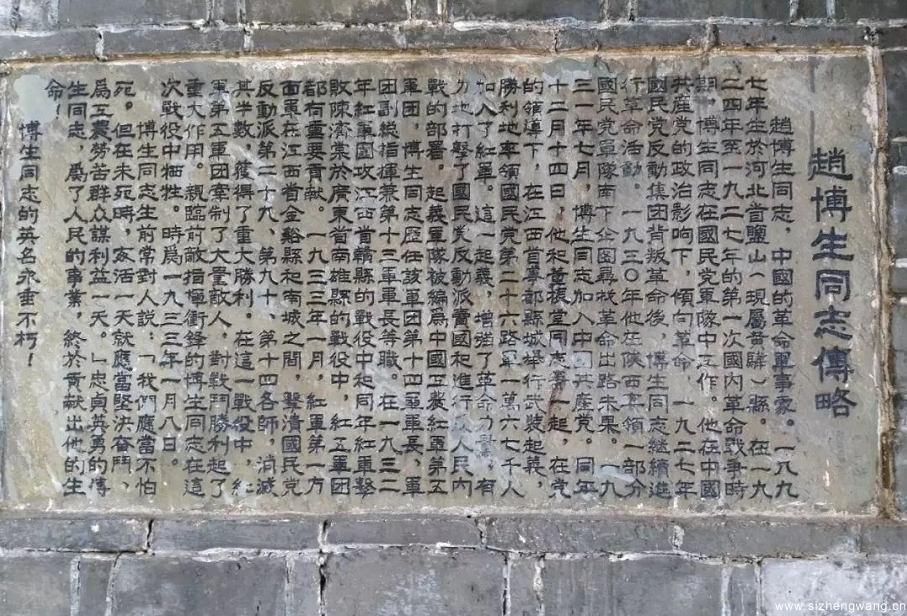 趙博生同志傳略
趙博生同志，中國的革命軍事家。一八九
七年生於河北省鹽山（現屬黃驊）縣。在一九
二四年至一九二七年的第一次國內革命戰爭時
期，博生同志在國民党軍隊中工作。他在中國
共產党的政治影响下，傾向革命，一九二七年
國民党反動集团背叛革命後，博生同志繼續進
行革命活動。一九三〇年他在陕西率領一部分
國民党軍隊南下企圖尋找革命出路未果。一九
三一年七月，博生同志加入中國共產党。同年
十二月十四日，他和董振堂同志等一起，在党
的領導下，在江西省寧都縣城舉行武裝起義，
勝利地率領國民党第二十六路軍一萬六七千人
加入了紅軍。這一起義，增強了革命力量，有
力地打擊了國民党反動派賣國和進行反人民內
戰的部署。起義軍隊被編爲中國工農紅軍第五
軍团，博生同志歷任該軍团第十四軍軍長、軍
团副總指揮兼第十三軍軍長等職。在一九三二
年紅軍圍攻江西省贛縣的戰役中和同年紅軍擊
敗陳濟棠於廣東省南雄縣的戰役中，紅五軍团
都有重要貢献。一九三三年一月，紅軍第一方
面軍在江西省金谿縣和南城之間，擊潰國民党
反動派第二十九、第九十、第十四各師，消滅
其半數，獲得了重大勝利。在這一戰役中，紅
軍第五軍团牽制了大量敵人，對戰鬥勝利起了
重大作用。親臨前敵指揮衝鋒的博生同志在這
次戰役中牺牲。時爲一九三三年一月八日。
博生同志生前常對人說，「我們應當不怕
死。但在未死時，多活一天就應當堅決奋鬥、
爲工農勞苦群众謀利益一天。」忠貞英勇的博
生同志，爲了人民的事業，終於貢献出他的生
命！
博生同志的英名永垂不朽！
www.sizhengwang.cn